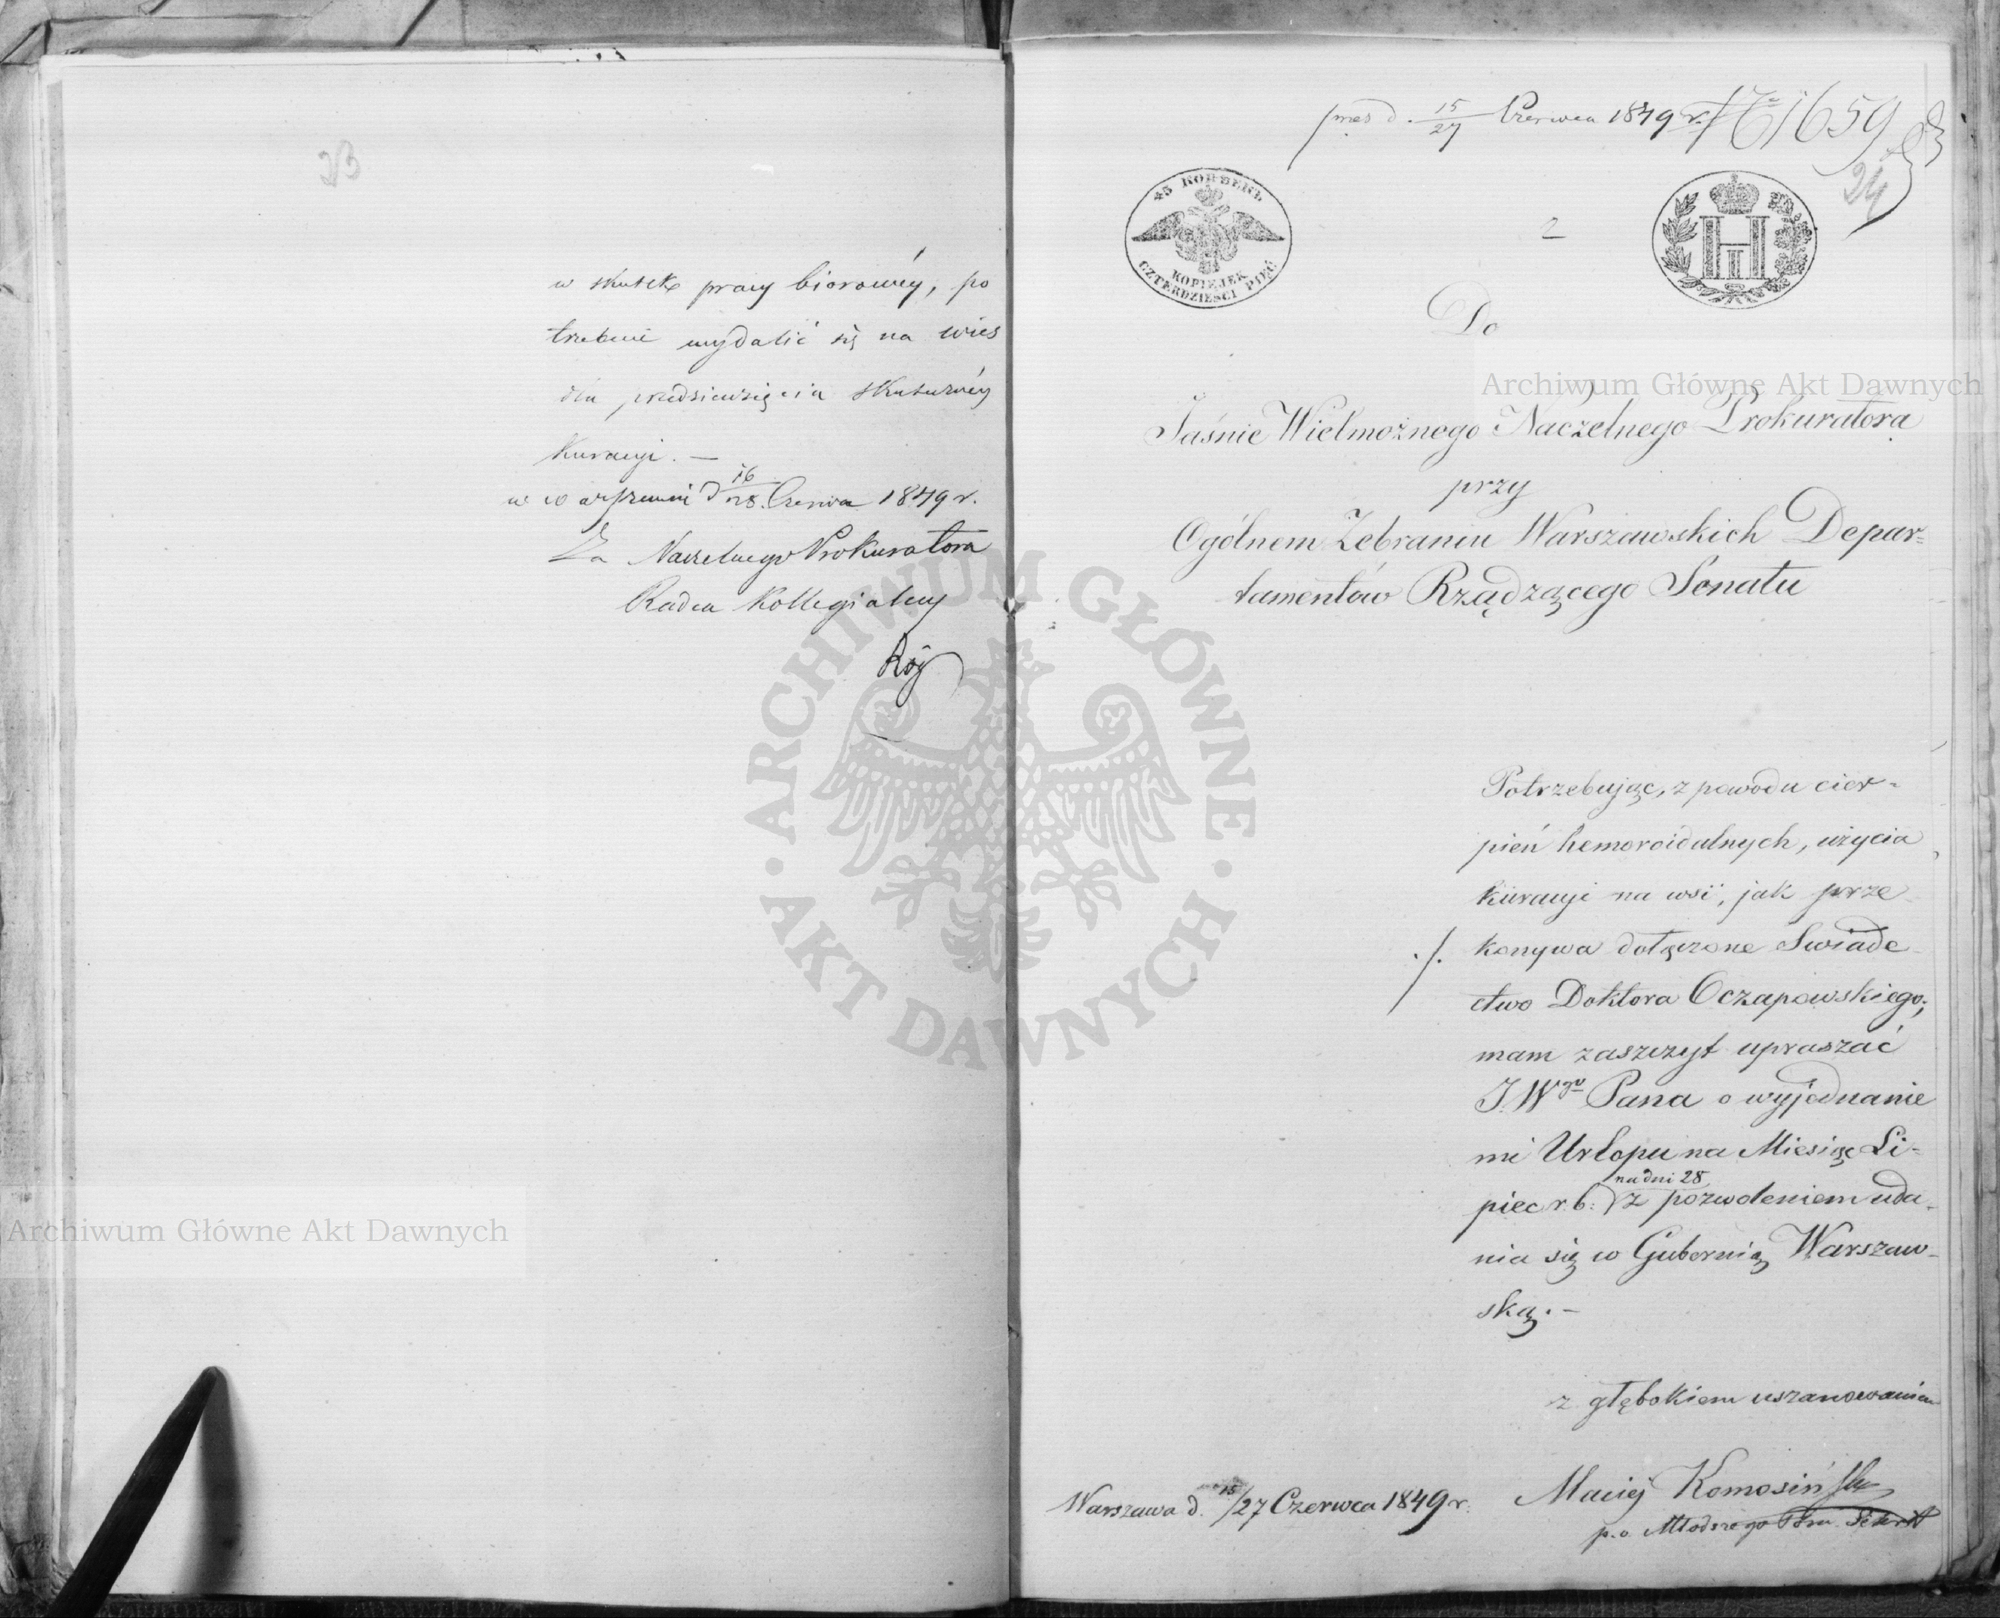 23
w skutek pracy biorowéy, po
trzebuie wydalić się na wieś
dla przedsięwzięcia skuteczney
kuracyi. —
w Warszawie d 16/28 Czerwca 1849 r.
Za Naczelnego Prokuratora
Radca Kollegialny
Rój
pres d. 15/27 Czerwca 1849 r. № 1659
24
45 КОПѢЕКЪ
KOPIEJEK
CZTERDZIEŚCI PIĘĆ
2
Do
Jaśnie Wielmożnego Naczelnego Prokuratora
przy
Ogólnem Zebraniu Warszawskich Depar=
tamentów Rządzącego Senatu
Potrzebując, z powodu cier=
pień hemoroidalnych, użycia
kuracyi na wsi, jak prze
./. konywa dołączone Swiade
ctwo Doktora Oczapowskiego;
mam zaszczyt upraszać
J.Wgo Pana o wyjednanie
mi Urlopu na Miesiąc Li=
na dni 28
piec r. b. z pozwoleniem uda=
nia się w Gubernią Warszaw=
ską. —
z głębokiem uszanowaniem
Maciej Komosiński
p.o. Młodszego Pom. Sekret
Warszawa d. 15/27 Czerwca 1849 r.
Archiwum Główne Akt Dawnych
Archiwum Główne Akt Dawnych
ARCHIWUM GŁÓWNE
AKT DAWNYCH